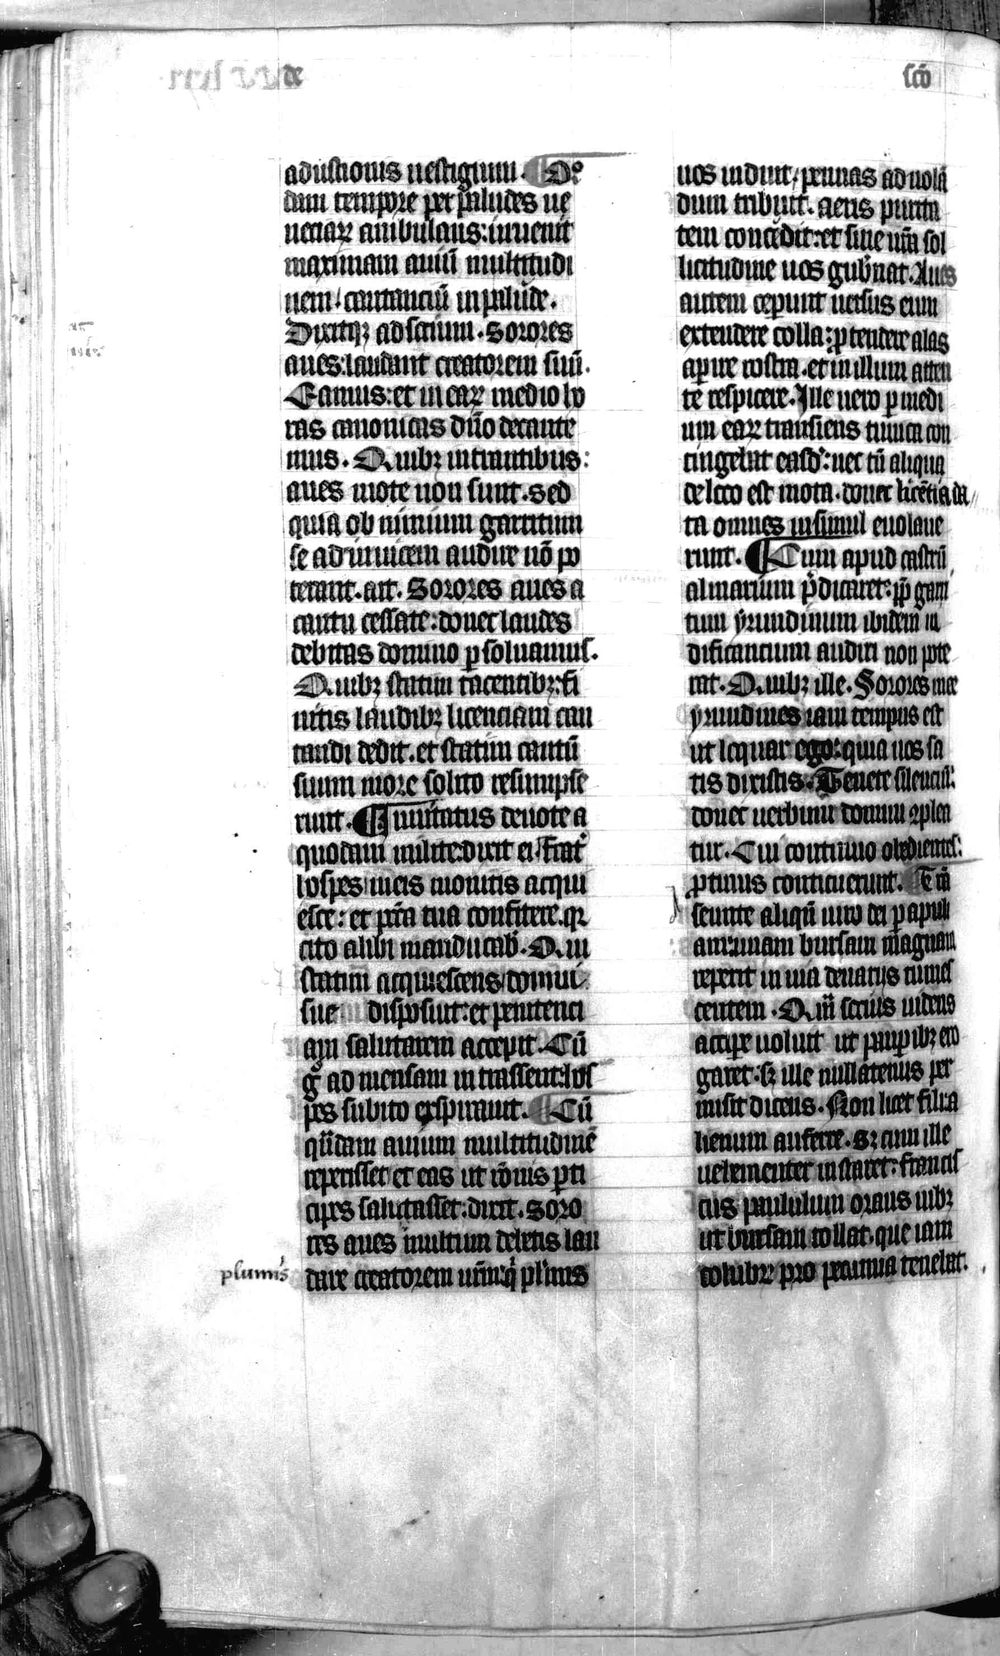 de
sc̄o
adustionis uestigium. Qo
dam tempore per paludes ue
neciaꝝ ambulans: inuenit
maximam auiū multitudi
nem / cantanciū in palude.
Dixitqꝫ ad socium. Sorores
aues: laudant creatorem suū.
Eamus: et in eaꝝ medio ho
ras canonicas dn̄o decante
mus. Quibꝫ intrantibus:
aues mote non sunt. sed
quia ob nimium garritum
se ad inuicem audire nō po
terant. ait. Sorores aues a
cantu cessate: donec laudes
debitas domino ꝑsoluamus.
Quibꝫ statim tacentibꝫ: fi
nitis laudibꝫ licenciam can
tandi dedit. et statim cantū
suum more solito resumpse
runt. ¶ Inuitatus deuote a
quodam milite: dixit ei. frat̉
hospes meis monitis acqui
esce: et pc̄ta tua confitere. qꝛ
cito alibi manducab̉. Qui
statim acquiescens / domui
sue disposuit: et penitenci
am salutarem accepit. Cū
g̊ ad mensam intrassent: hos
pes subito exspirauit. Cū
qn̄dam auium multitudinē
reperisset et eas ut rōnis ꝑti
cipes salutasset: dixit. Soro
res aues multum debetis lau
plumis
dare creatorem ur̄m: qͥ plumis
uos induit / pennas ad uolā
dum tribuit. aeris purita
tem concedit: et sine ur̄a sol
licitudine uos gubnat. Aues
autem ceperunt uersus eum
extendere colla: ꝓtendere alas
aperire rostra. et in illum atten
te respicere. Ille uero ꝑ medi
um eaꝝ transiens tunica con
tingebat easd̉: nec tn̄ aliqua
de loco est mota. donec licētia da
ta omnes insimul euolaue
runt. ¶ Cum apud castrū
almarium p̄dicaret: ꝓpt̉ garri
tum yrundinum ibidem ni
dificantium audiri non pote
rat. Quibꝫ ille. Sorores mee
yrundines iam tempus est
ut loquar ego: quia uos sa
tis dixistis. Tenete silenciū:
donec uerbum domini ꝯplea
tur. Cui continuo obedientes:
ꝓtinus conticuerunt. Trā
seunte aliqn̄ uiro dei ꝑ apuli
am: unam bursam magnam
reperit in uia denariis tumes
centem. Qm̄ socius uidens
accipere uoluit ut pauꝑibꝫ ero
garet. sꝫ ille nullatenus per
misit dicens. Non licet fili a
lienum auferre. Sꝫ cum ille
uehementer instaret: francis
cus paululum orans iubꝫ
ut bursam tollat. que iam
colubꝝ pro pecunia tenebat.